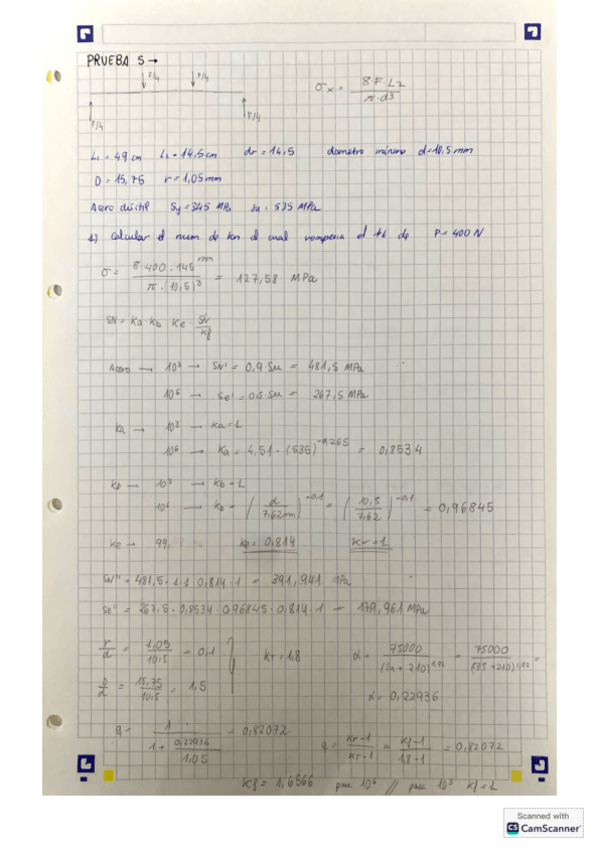 PRUEBA 5 →
F/4 F/4
F/4 F/4
σx = 8·F·L2 / π·d³
L1 = 49 cm L2 = 14,5 cm dr = 14,5 diametro mínimo d=10,5 mm
D = 15,75 r = 1,05 mm
Acero dúctil Sy = 345 MPa Su = 535 MPa
1) Calcular el num de km el cual romperia el de P = 400 N
σ = 8·400·145 mm / π·(10,5)³ = 127,58 MPa
SN = Ka·Kb Ke ·
Acero → 10³ → SN' = 0,9 Su = 481,5 MPa
10⁶ → Se' = 0,5 Su = 267,5 MPa
Ka → 10³ → Ka = 1
10⁶ → Ka = 4,51 · (535)^-0,265 = 0,8534
Kb → 10³ → Kb = 1
10⁶ → Kb = (d / 7,62mm)^-0,1 = (10,5 / 7,62)^-0,1 = 0,96845
Ke → 99, Ke = 0,814 Kr = 1
SN'' = 481,5 · 1·1 0,814 · 1 = 391,941 MPa
Se'' = 267,5 · 0,8534 · 0,96845 · 0,814 · 1 = 179,961 MPa
r/d = 1,05 / 10,5 = 0,1
D/d = 15,75 / 10,5 = 1,5
KT = 1,8
α = 75000 / (Su + 210)^1,92 = 75000 / (535 + 210)^1,92 =
α = 0,22936
q = 1 / 1 + 0,22936 / 1,05 = 0,82072
q = Kf - 1 / KT - 1 = Kf - 1 / 1,8 - 1 = 0,82072
Kf = 1,6566 para 10⁶ // para 10³ Kf = 1
Scanned with
CS CamScanner